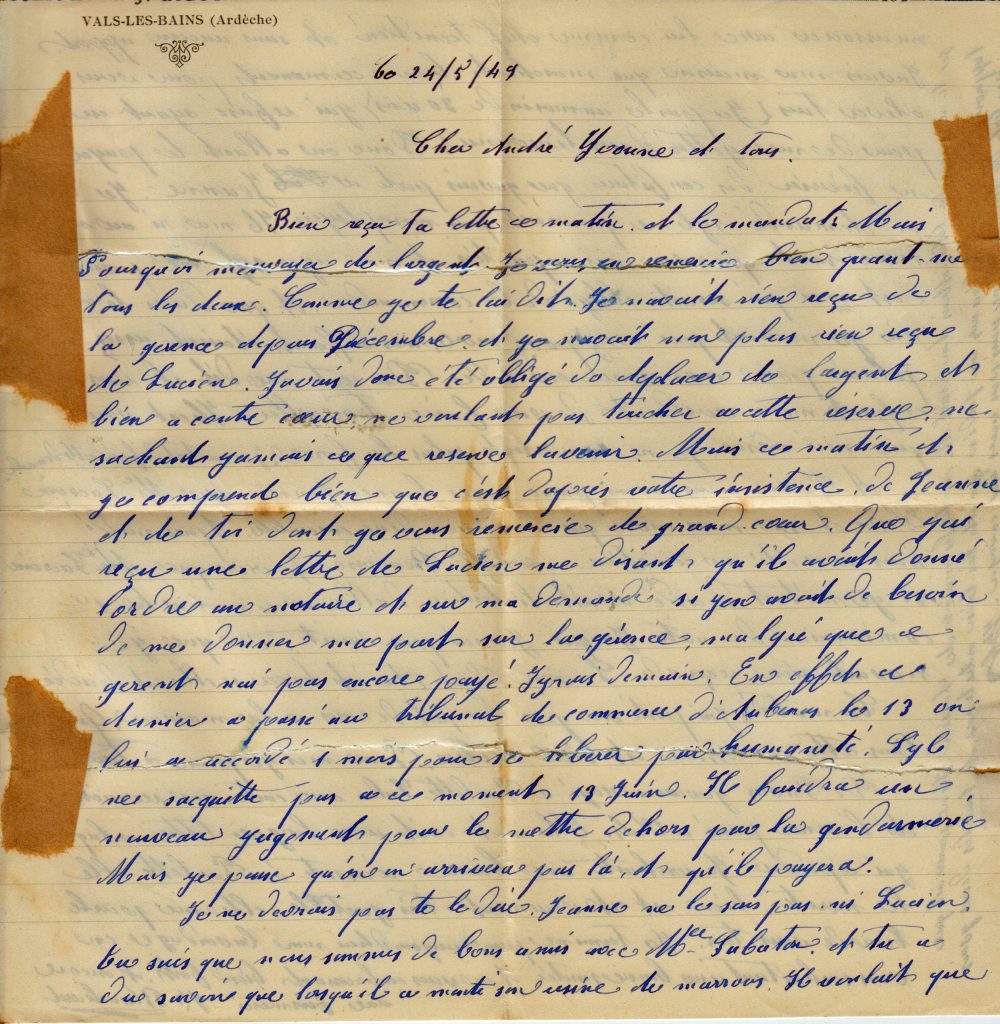 VALS-LES-BAINS (Ardèche)
Le 24/5/49
Cher André Yvonne et tous.
Bien reçu ta lettre ce matin. et le mandat. Mais
Pourquoi m'envoyer de l'argent Je vous en remercie bien quant-mê
tous les deux. Comme je te lai dit. Je navait rien reçu de
la gerence depuis Décembre. et je navait non plus rien reçu
de Lucien. Javais donc été obligé de déplacer de largent et
bien a contre cœur ne voulant pas toucher a cette réserve. ne
sachant jamais ce que reserve lavenir. Mais ce matin et
je comprend bien que c'est daprès votre insistence. de Jeanne
et de toi dont je vous remercie de grand-cœur. Que j'ai
reçu une lettre de Lucien me disant qu'il avait donné
lordre au notaire et sur ma demande si jen avait de besoin
de me donner ma part sur la gérence, malgré que ce
gerent nai pas encore payé. Jyrais demain. En effet ce
dernier a passé au tribunal de commerce d'Aubenas le 13 on
lui a accordé 1 mois pour se liberer par humanité. S'yl
ne sacquitte pas a ce moment 13 Juin. Il faudra un
nouveau jugement pour le mettre dehors par la gendarmerie
Mais je pense qu'on n'arrivera pas là, et qu'il payera.
Je ne devrais pas te le dire. Jeanne ne le sais pas. ni Lucien.
Tu sais que nous sommes de bons amis avec Sabaton. et tu a
du savoir que lorsqu'il a monté son usine de marrons. Il voulait que